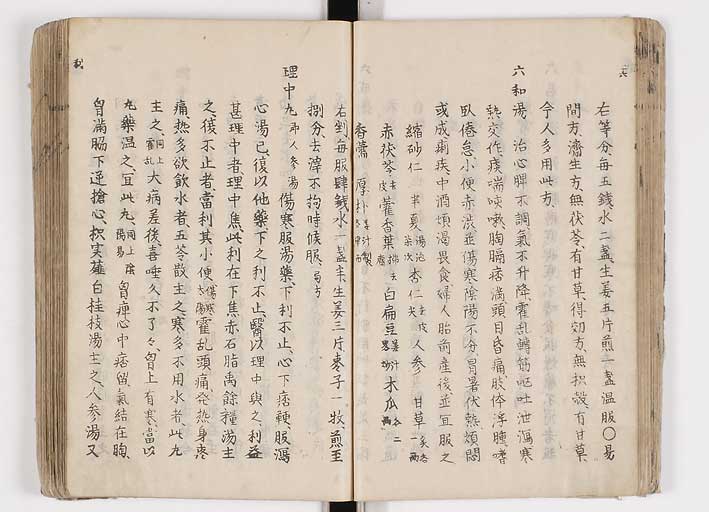 右等分每五錢水二盞生姜五片煎一盞溫服〇易
間方濟生方無伏苓有甘草得効方無枳殻有甘草
今人多用此方
六和湯 治心脾不調氣不升降霍乱轉筋嘔吐泄瀉寒
熱交作痰喘咳嗽胸膈痞滿頭目昏痛肢体浮腫嗜
臥倦怠小便赤渋並傷寒陰陽不分冒暑伏熱煩悶
或成痢疾中酒煩渴畏食婦人胎前產後並宜服之
縮砂仁 半夏湯泡 杏仁 人參 甘草
赤伏苓 藿香葉 白扁豆姜汁 木瓜
香薷 厚朴姜汁製
右剉每服肆錢水一盞半生姜三片棗子一枚煎至
捌分去滓不拘時候服
理中丸 人参湯 傷寒服湯藥下利不止心下痞鞕服瀉
心湯已復以他藥下之利不止醫以理中與之利益
甚理中者理中焦此利在下焦赤石脂禹餘糧湯主
之復不止者當利其小便傷寒霍乱頭痛発熱身疼
痛熱多欲飲水者五苓散主之寒多不用水者此丸
主之同上霍乱大病差後喜唾久不了々胃上有寒當以
丸藥温之宜此丸同上陰陽易胷痺心中痞留氣結在胸
胷滿脇下逆搶心枳実薤白桂枝湯主之人参湯又